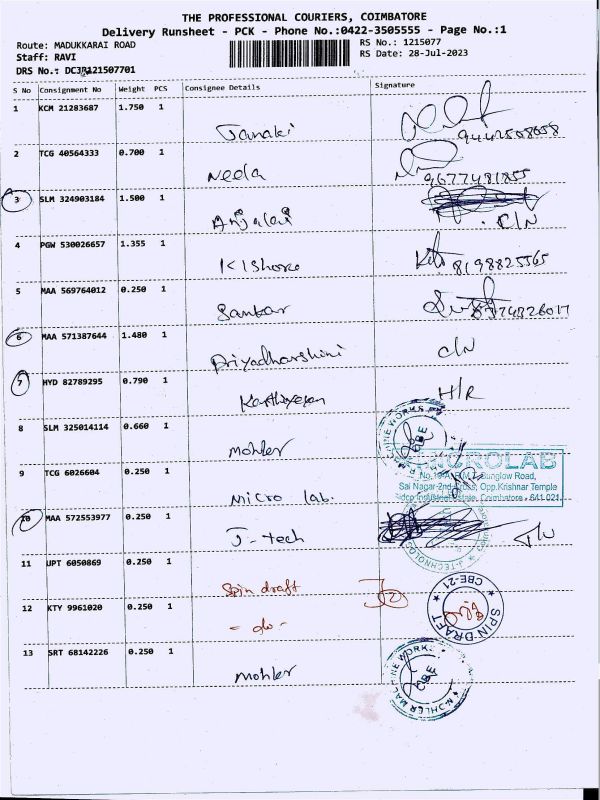 THE PROFESSIONAL COURIERS, COIMBATORE
Delivery Runsheet - PCK - Phone No.:0422-3505555 - Page No.:1
Route: MADUKKARAI ROAD
RS No.: 1215077
Staff: RAVI
RS Date: 28-Jul-2023
DRS No.:
S No Consignment No Weight PCS Consignee Details Signature
1 KCM 21283687 1.750 1
Janaki 9442508658
2 TCG 40564333 0.700 1
Neela
3 SLM 324903184 1.500 1
Anjalai C/N
4 PGW 530026657 1.355 1
Kishore 8198825565
5 MAA 569764012 0.250 1
Sankar
6 MAA 571387644 1.480 1
Priyadharshini C/N
7 HYD 82789295 0.790 1
Karthikeyan H/R
8 SLM 325014114 0.660 1
mohler
9 TCG 6026604 0.250 1
micro lab.
MICROLAB
Sai Nagar-2nd Cross, Opp.Krishnar Temple
Sidco Industrial Estate, Coimbatore - 641 021.
10 MAA 572553977 0.250 1
J-tech
11 UPT 6050869 0.250 1
Spin draft
12 KTY 9961020 0.250 1
- do -
SPIN DRAFT CBE-21
13 SRT 68142226 0.250 1
mohler
MOHLER MACHINE WORKS CBE